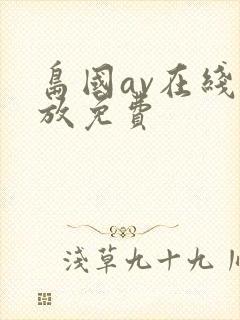 島國av在綫
放免費
淺草九十九